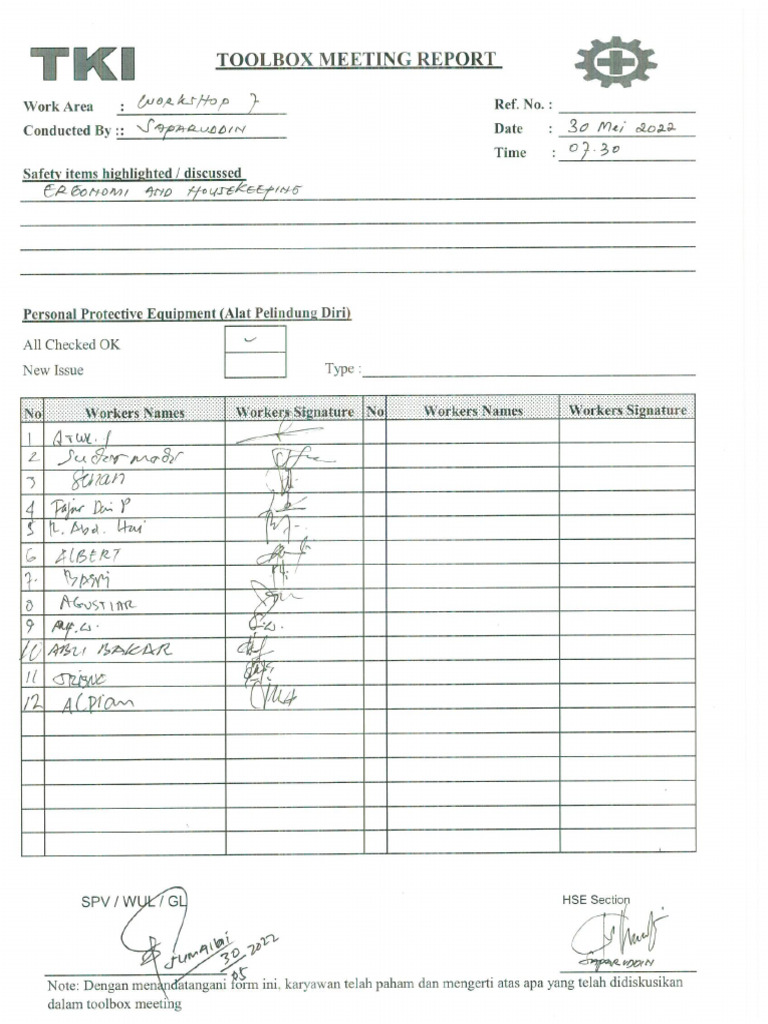 TKI
TOOLBOX MEETING REPORT
Work Area : WORKSHOP 7
Ref. No. :
Conducted By :: SAPARUDDIN
Date : 30 Mei 2022
Time : 07.30
Safety items highlighted / discussed
ERGONOMI AND HOUSEKEEPING
Personal Protective Equipment (Alat Pelindung Diri)
All Checked OK
New Issue
Type :
No Workers Names Workers Signature No Workers Names Workers Signature
1
2
3
4 Fajar Dwi P
5 Abd. Hai
6 ALBERT
7. Basri
8 AGUSTIAR
9
10 ABU BAKAR
11
12 ALPian
SPV / WUL / GL
HSE Section
Jumaidi
30 2022
05
SAPARUDDIN
Note: Dengan menandatangani form ini, karyawan telah paham dan mengerti atas apa yang telah didiskusikan
dalam toolbox meeting